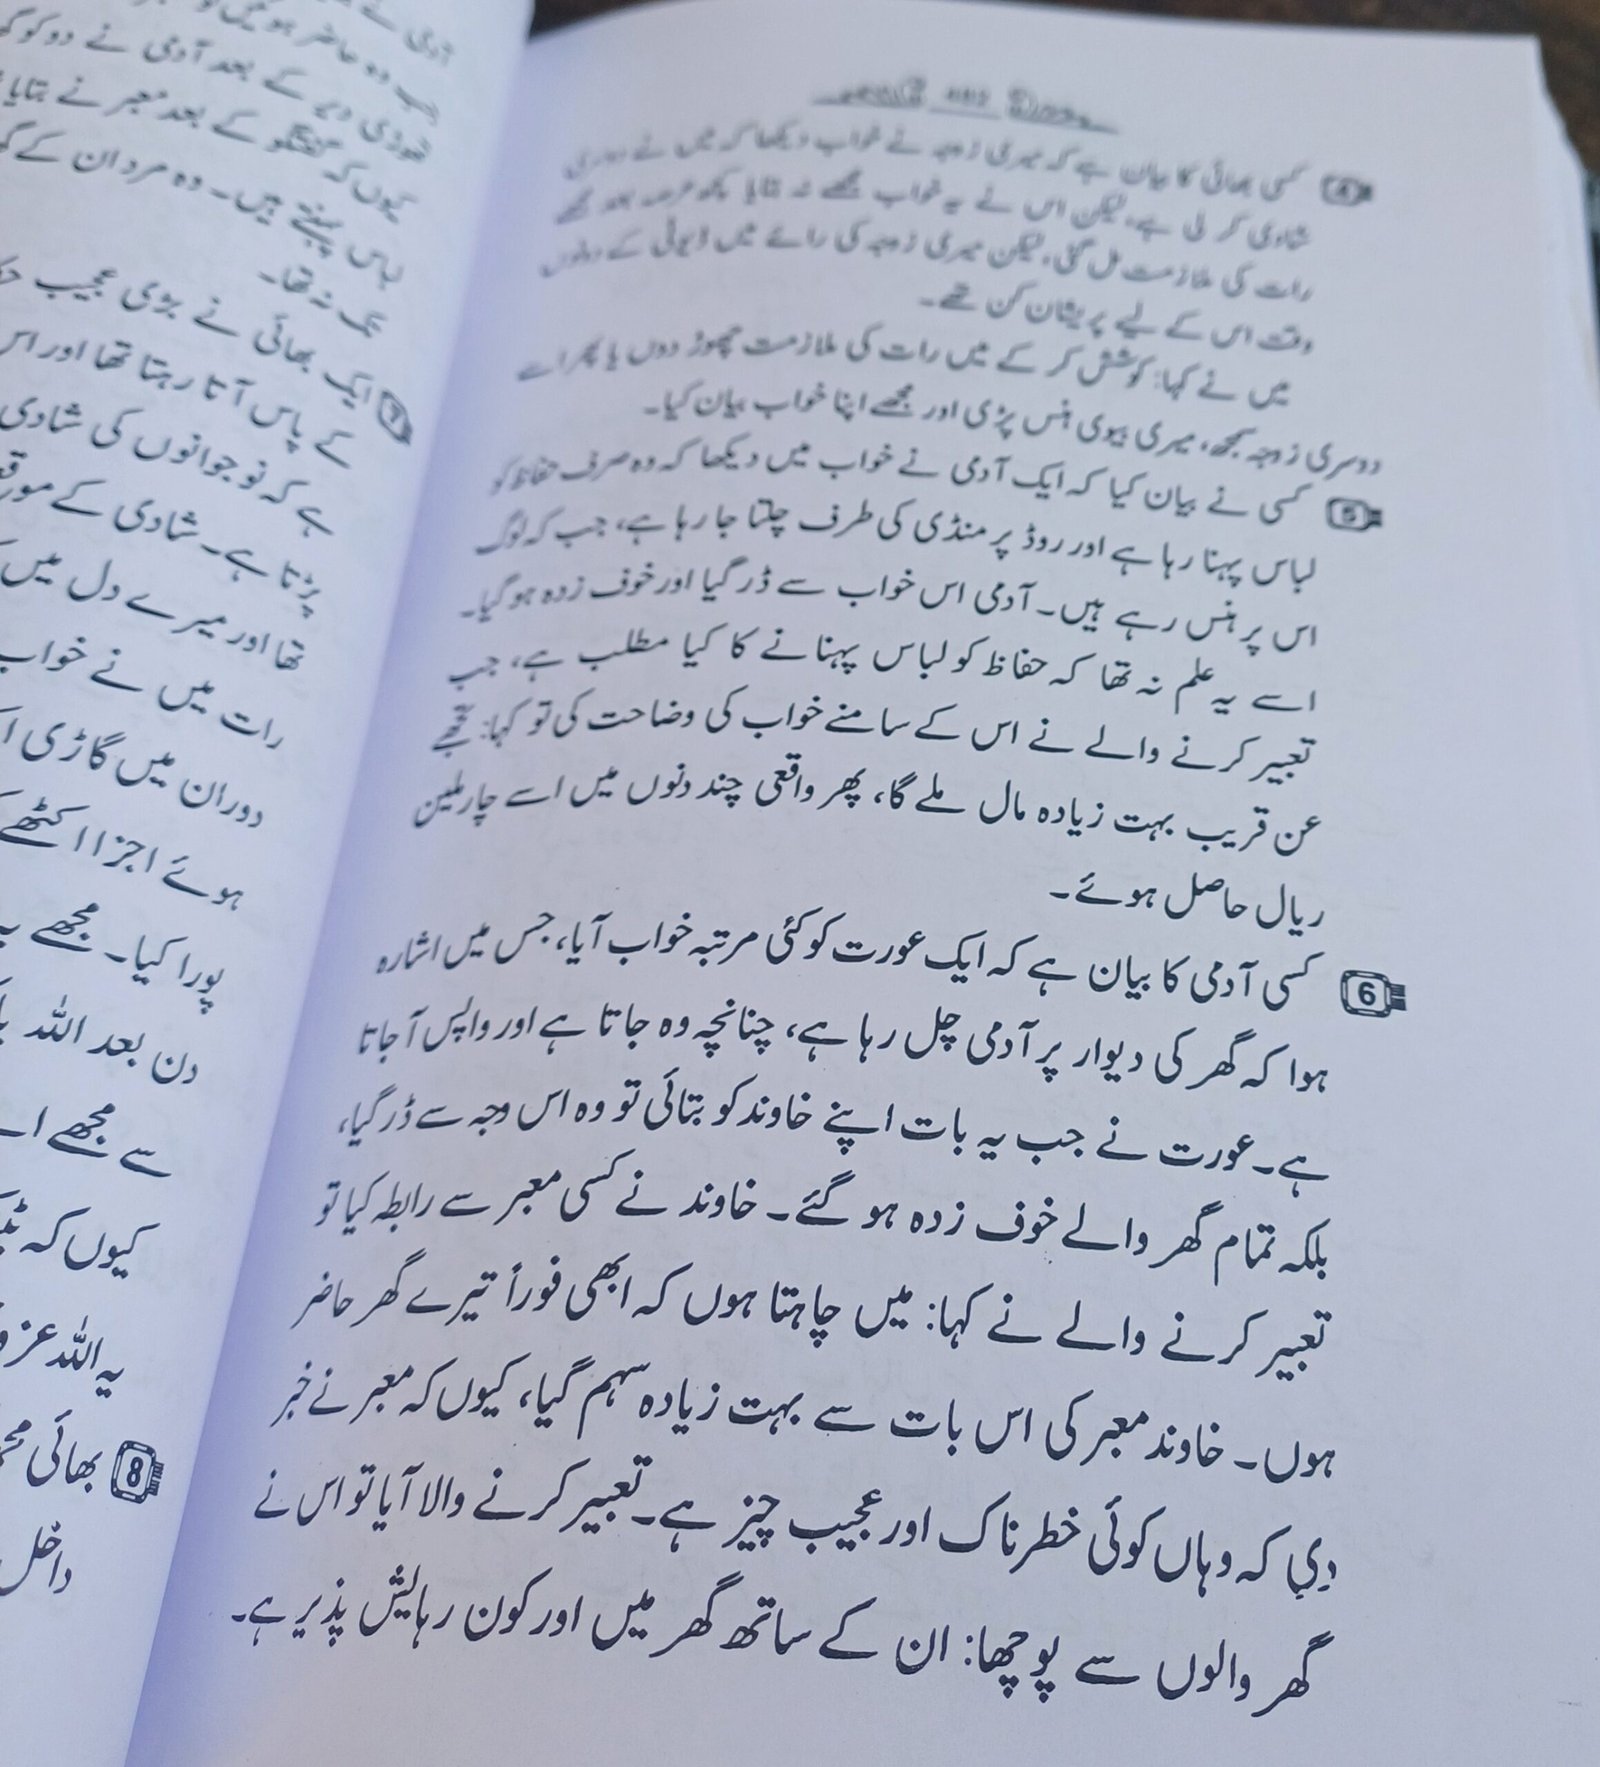 4 کسی بھائی کا بیان ہے کہ میری زوجہ نے خواب دیکھا کہ میں نے دوسری
شادی کر لی ہے، لیکن اس نے یہ خواب مجھے نہ بتایا کچھ عرصہ بعد مجھے
رات کی ملازمت مل گئی، لیکن میری زوجہ کی رائے میں ڈیوٹی کے دونوں
وقت اس کے لیے پریشان کن تھے۔
میں نے کہا: کوشش کر کے میں رات کی ملازمت چھوڑ دوں یا پھر اسے
دوسری زوجہ سمجھ، میری بیوی ہنس پڑی اور مجھے اپنا خواب بیان کیا۔
5 کسی نے بیان کیا کہ ایک آدمی نے خواب میں دیکھا کہ وہ صرف حفاظ کو
لباس پہنا رہا ہے اور روڈ پر منڈی کی طرف چلتا جا رہا ہے، جب کہ لوگ
اس پر ہنس رہے ہیں۔ آدمی اس خواب سے ڈر گیا اور خوف زدہ ہو گیا۔
اسے یہ علم نہ تھا کہ حفاظ کو لباس پہنانے کا کیا مطلب ہے، جب
تعبیر کرنے والے نے اس کے سامنے خواب کی وضاحت کی تو کہا: تجھے
عن قریب بہت زیادہ مال ملے گا، پھر واقعی چند دنوں میں اسے چار ملین
ریال حاصل ہوئے۔
6 کسی آدمی کا بیان ہے کہ ایک عورت کو کئی مرتبہ خواب آیا، جس میں اشارہ
ہوا کہ گھر کی دیوار پر آدمی چل رہا ہے، چنانچہ وہ جاتا ہے اور واپس آ جاتا
ہے۔ عورت نے جب یہ بات اپنے خاوند کو بتائی تو وہ اس وجہ سے ڈر گیا،
بلکہ تمام گھر والے خوف زدہ ہو گئے۔ خاوند نے کسی معبر سے رابطہ کیا تو
تعبیر کرنے والے نے کہا: میں چاہتا ہوں کہ ابھی فوراً تیرے گھر حاضر
ہوں۔ خاوند معبر کی اس بات سے بہت زیادہ سہم گیا، کیوں کہ معبر نے خبر
دی کہ وہاں کوئی خطرناک اور عجیب چیز ہے۔ تعبیر کرنے والا آیا تو اس نے
گھر والوں سے پوچھا: ان کے ساتھ گھر میں اور کون رہایش پذیر ہے۔
تھوڑی دیر کے بعد آدمی نے دو
کیوں کہ گفتگو کے بعد معبر نے بتایا
لباس پہنتے ہیں۔ وہ مرد ان کے
تک نہ تھا۔
7 ایک بھائی نے بڑی عجیب
کے پاس آتا رہتا تھا اور اس
ہے کہ نوجوانوں کی شادی
پڑتا ہے۔ شادی کے
تھا اور میرے دل میں
رات میں نے خواب
دوران میں گاڑی
ہوئے اجزا اکٹھے
پورا کیا۔ مجھے
دن بعد اللہ
سے مجھے
کیوں کہ
یہ اللہ عز
8 بھائی
داخل